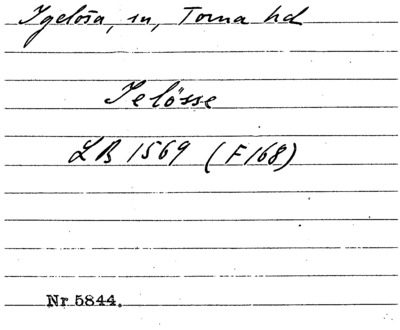 Igelösa, sn, Torna hd
Ielösse
LB 1569 (F168)
Nr 5844.